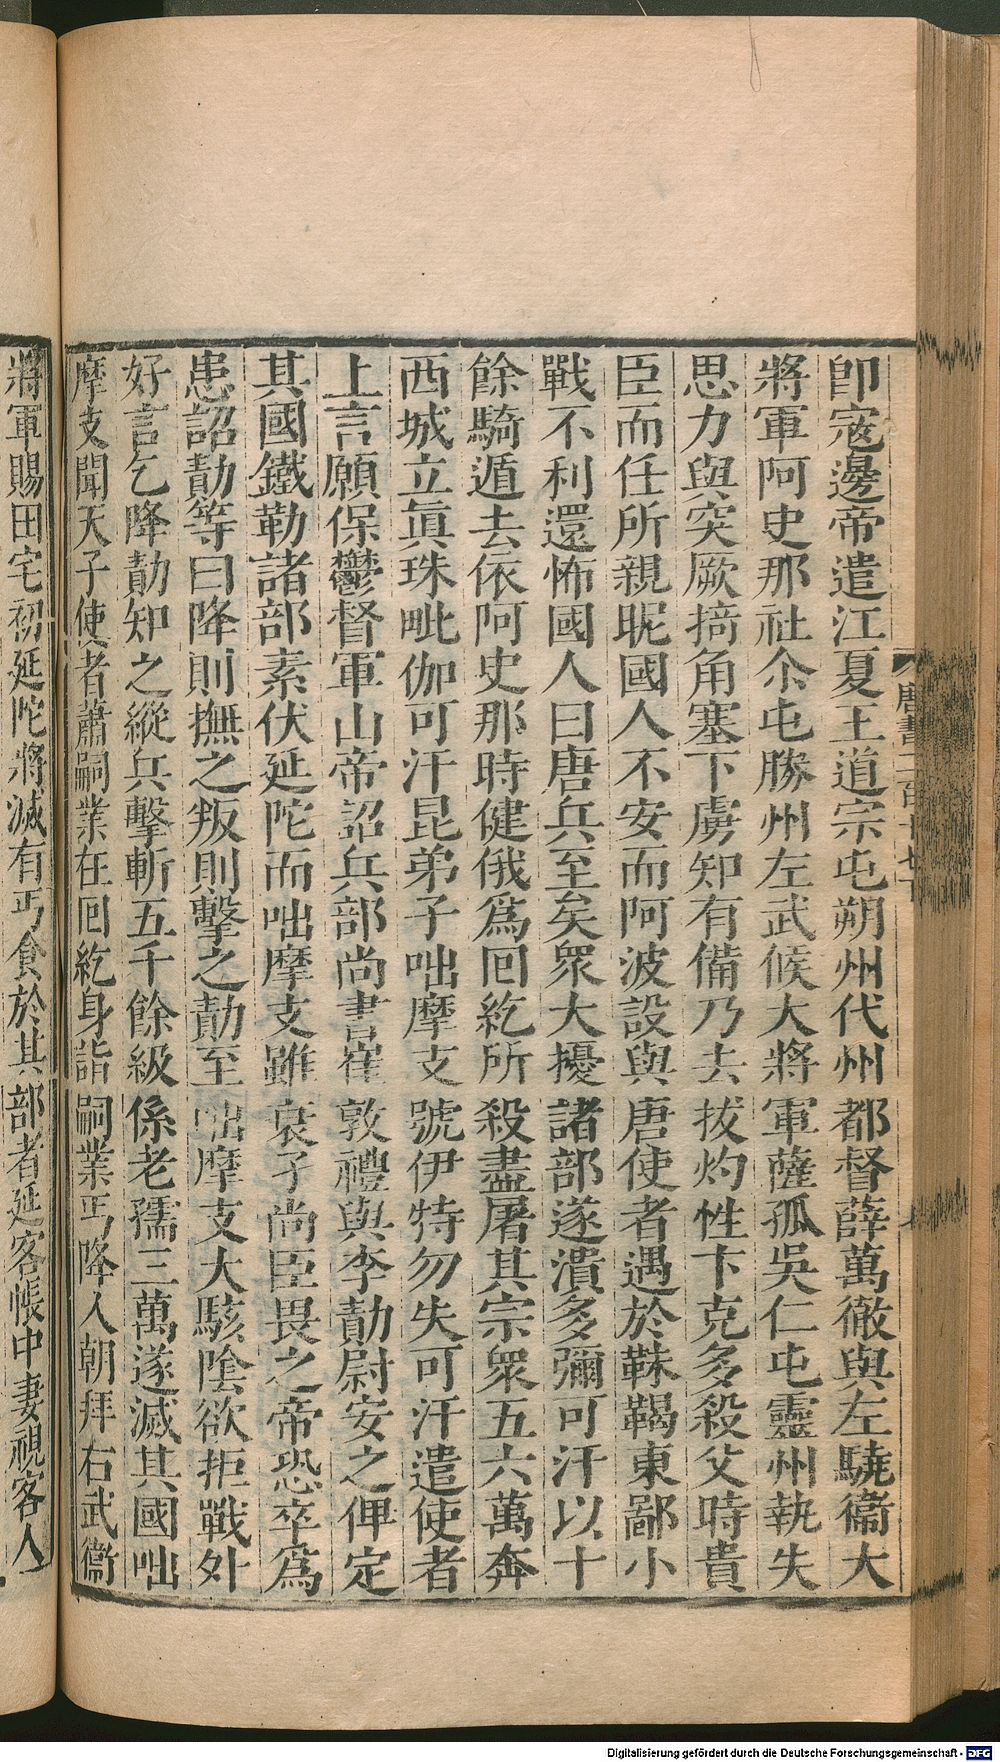 卽寇邊帝遣江夏王道宗屯朔州代州都督薛萬徹與左驍衞大
將軍阿史那社尒屯勝州左武候大將軍薩孤吳仁屯靈州執失
思力與突厥掎角塞下虜知有備乃去拔灼性卞克多殺父時貴
臣而任所親昵國人不安而阿波設與唐使者遇於靺鞨東鄙小
戰不利還怖國人曰唐兵至矣衆大擾諸部遂潰多彌可汗以十
餘騎遁去依阿史那時健俄爲回紇所殺盡屠其宗衆五六萬奔
西城立眞珠毗伽可汗昆弟子咄摩支號伊特勿失可汗遣使者
上言願保鬱督軍山帝詔兵部尚書崔敦禮與李勣尉安之俾定
其國鐵勒諸部素伏延陀而咄摩支雖衰孑尚臣畏之帝恐卒爲
患詔勣等曰降則撫之叛則擊之勣至咄摩支大駭陰欲拒戰外
好言乞降勣知之縱兵擊斬五千餘級係老孺三萬遂滅其國咄
摩支聞天子使者蕭嗣業在回紇身詣嗣業丐降入朝拜右武衞
將軍賜田宅初延陀將滅有丐食於其部者延客帳中妻視客人
唐書二百十七下
Digitalisierung gefördert durch die Deutsche Forschungsgemeinschaft - DFG